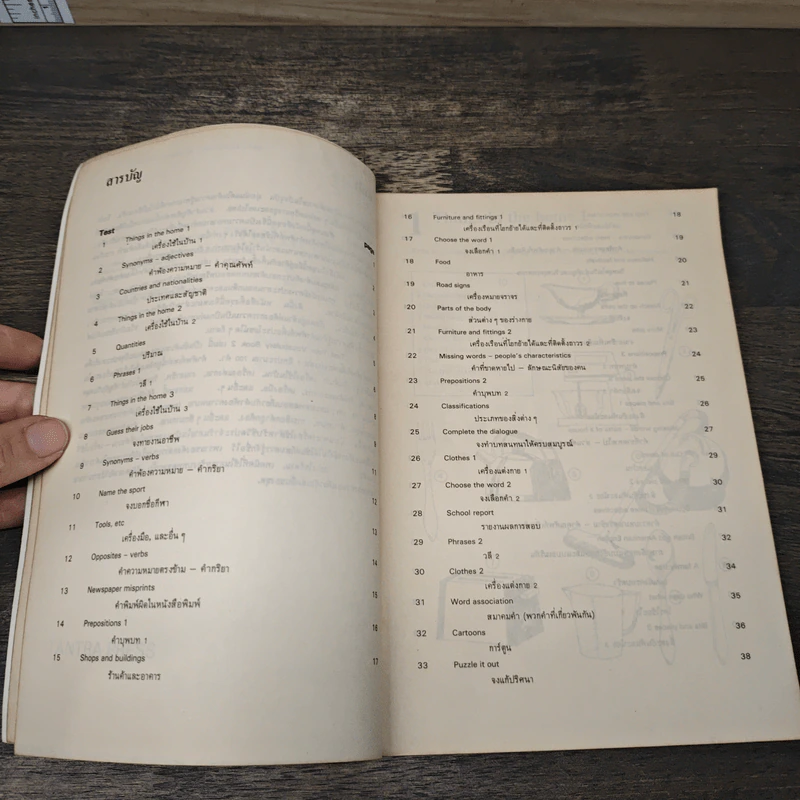 สารบัญ
Test
1 Things in the home 1
เครื่องใช้ในบ้าน 1
2 Synonyms – adjectives
คำพ้องความหมาย – คำคุณศัพท์
3 Countries and nationalities
ประเทศและสัญชาติ
4 Things in the home 2
เครื่องใช้ในบ้าน 2
5 Quantities
ปริมาณ
6 Phrases 1
วลี 1
7 Things in the home 3
เครื่องใช้ในบ้าน 3
8 Guess their jobs
จงทายงานอาชีพ
9 Synonyms – verbs 11
คำพ้องความหมาย – คำกริยา
10 Name the sport 12
จงบอกชื่อกีฬา
11 Tools, etc 13
เครื่องมือ, และอื่น ๆ
12 Opposites – verbs 14
คำความหมายตรงข้าม – คำกริยา
13 Newspaper misprints 15
คำพิมพ์ผิดในหนังสือพิมพ์
14 Prepositions 1 16
คำบุพบท 1
15 Shops and buildings 17
ร้านค้าและอาคาร
16 Furniture and fittings 1 18
เครื่องเรือนที่โยกย้ายได้และที่ติดตั้งถาวร 1
17 Choose the word 1 19
จงเลือกคำ 1
18 Food 20
อาหาร
19 Road signs 21
เครื่องหมายจราจร
20 Parts of the body 22
ส่วนต่าง ๆ ของร่างกาย
21 Furniture and fittings 2 23
เครื่องเรือนที่โยกย้ายได้และที่ติดตั้งถาวร 2
22 Missing words – people's characteristics 24
คำที่ขาดหายไป – ลักษณะนิสัยของคน
23 Prepositions 2 25
คำบุพบท 2
24 Classifications 26
ประเภทของสิ่งต่าง ๆ
25 Complete the dialogue 27
จงทำบทสนทนาให้ครบสมบูรณ์
26 Clothes 1 29
เครื่องแต่งกาย 1
27 Choose the word 2 30
จงเลือกคำ 2
28 School report 31
รายงานผลการสอบ
29 Phrases 2 32
วลี 2
30 Clothes 2 34
เครื่องแต่งกาย 2
31 Word association 35
สมาคมคำ (พวกคำที่เกี่ยวพันกัน)
32 Cartoons 36
การ์ตูน
33 Puzzle it out 38
จงแก้ปริศนา